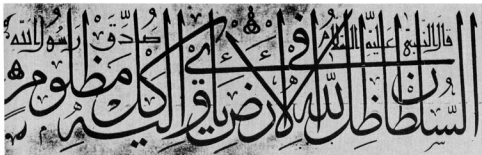 قال النبي عليه السلام
السلطان ظل الله في الأرض يأوي إليه كل مظلوم
صدق رسول الله